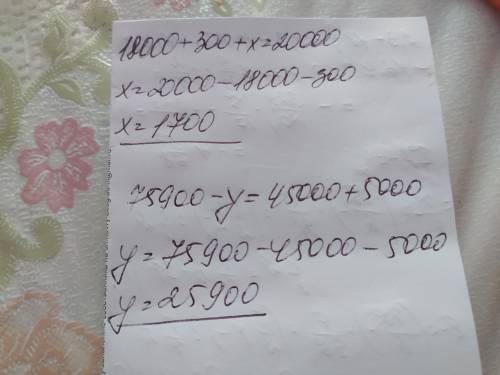 18000+300+x=20000
x=20000-18000-300
x=1700
75900-y=45000+5000
y=75900-45000-5000
y=25900